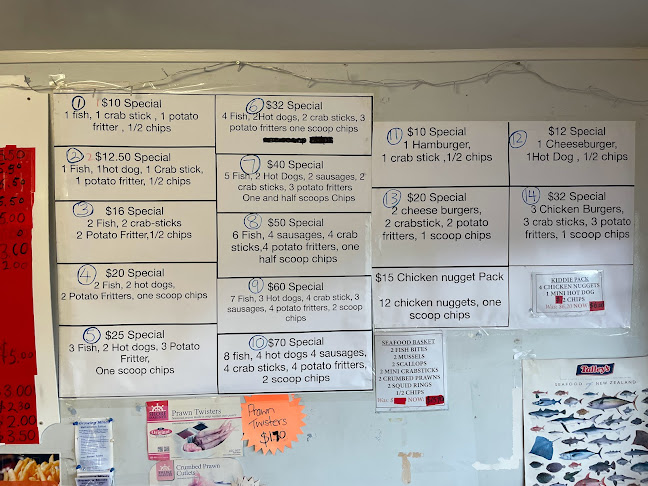 1 $10 Special
1 fish, 1 crab stick , 1 potato
fritter , 1/2 chips
2 $12.50 Special
1 Fish, 1hot dog, 1 Crab stick,
1 potato fritter, 1/2 chips
3 $16 Special
2 Fish, 2 crab-sticks
2 Potato Fritter,1/2 chips
4 $20 Special
2 Fish, 2 hot dogs,
2 Potato Fritters, one scoop chips
5 $25 Special
3 Fish, 2 Hot dogs, 3 Potato
Fritter,
One scoop chips
6 $32 Special
4 Fish, 2Hot dogs, 2 crab sticks, 3
potato fritters one scoop chips
7 $40 Special
5 Fish, 2 Hot Dogs, 2 sausages, 2
crab sticks, 3 potato fritters
One and half scoops Chips
8 $50 Special
6 Fish, 4 sausages, 4 crab
sticks,4 potato fritters, one
half scoop chips
9 $60 Special
7 Fish, 3 Hot dogs, 4 crab stick, 3
sausages, 4 potato fritters, 2 scoop
chips
10 $70 Special
8 fish, 4 hot dogs 4 sausages,
4 crab sticks, 4 potato fritters,
2 scoop chips
11 $10 Special
1 Hamburger,
1 crab stick ,1/2 chips
12 $12 Special
1 Cheeseburger,
1Hot Dog , 1/2 chips
13 $20 Special
2 cheese burgers,
2 crabstick, 2 potato
fritters, 1 scoop chips
14 $32 Special
3 Chicken Burgers,
3 crab sticks, 3 potato
fritters, 1 scoop chips
$15 Chicken nugget Pack
12 chicken nuggets, one
scoop chips
KIDDIE PACK
4 CHICKEN NUGGETS
1 MINI HOT DOG
1/2 CHIPS
NOW
SEAFOOD BASKET
2 FISH BITES
2 MUSSELS
2 SCALLOPS
2 MINI CRABSTICKS
2 CRUMBED PRAWNS
2 SQUID RINGS
1/2 CHIPS
NOW
Talley's
SEAFOOD OF NEW ZEALAND
Prawn Twisters
Prawn
Twisters
Crumbed Prawn
Cutlets